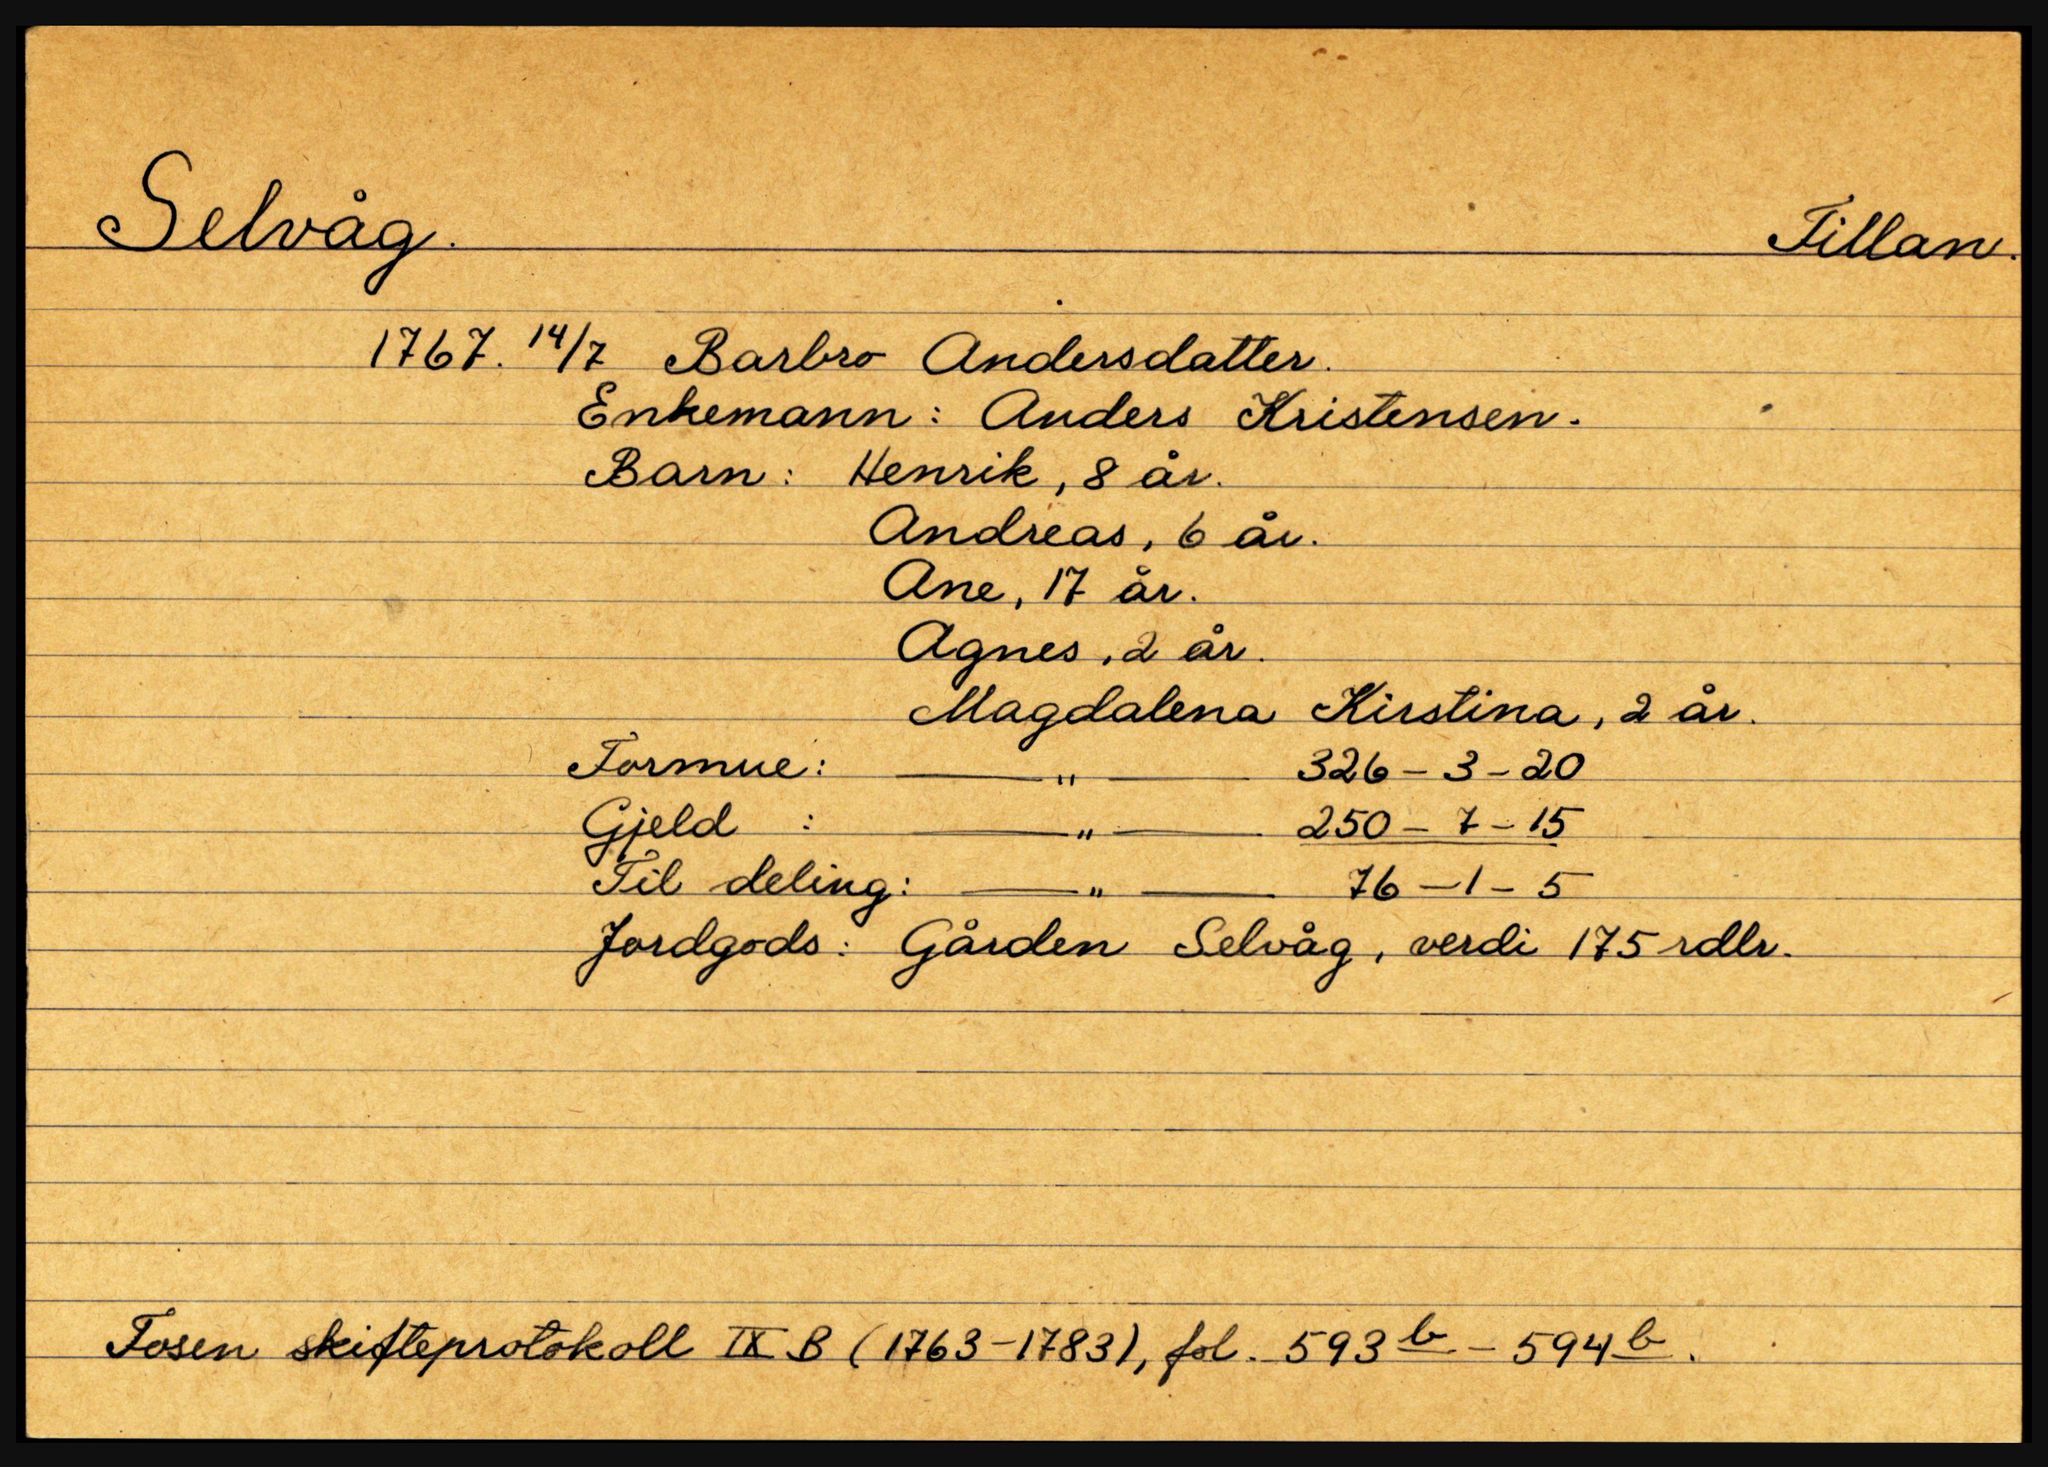 Selvåg. Fillan.
1767. 14/7 Barbro Andersdatter.
Enkemann: Anders Kristensen.
Barn: Henrik, 8 år.
Andreas, 6 år.
Ane, 17 år.
Agnes, 2 år.
Magdalena Kirstina, 2 år.
Formue: — " — 326 - 3 - 20
Gjeld : — " — 250 - 7 - 15
Til deling: — " — 76 - 1 - 5
Jordgods: Gården Selvåg, verdi 175 rdlr.
Fosen skifteprotokoll IX B (1763-1783), fol. 593 b - 594 b.